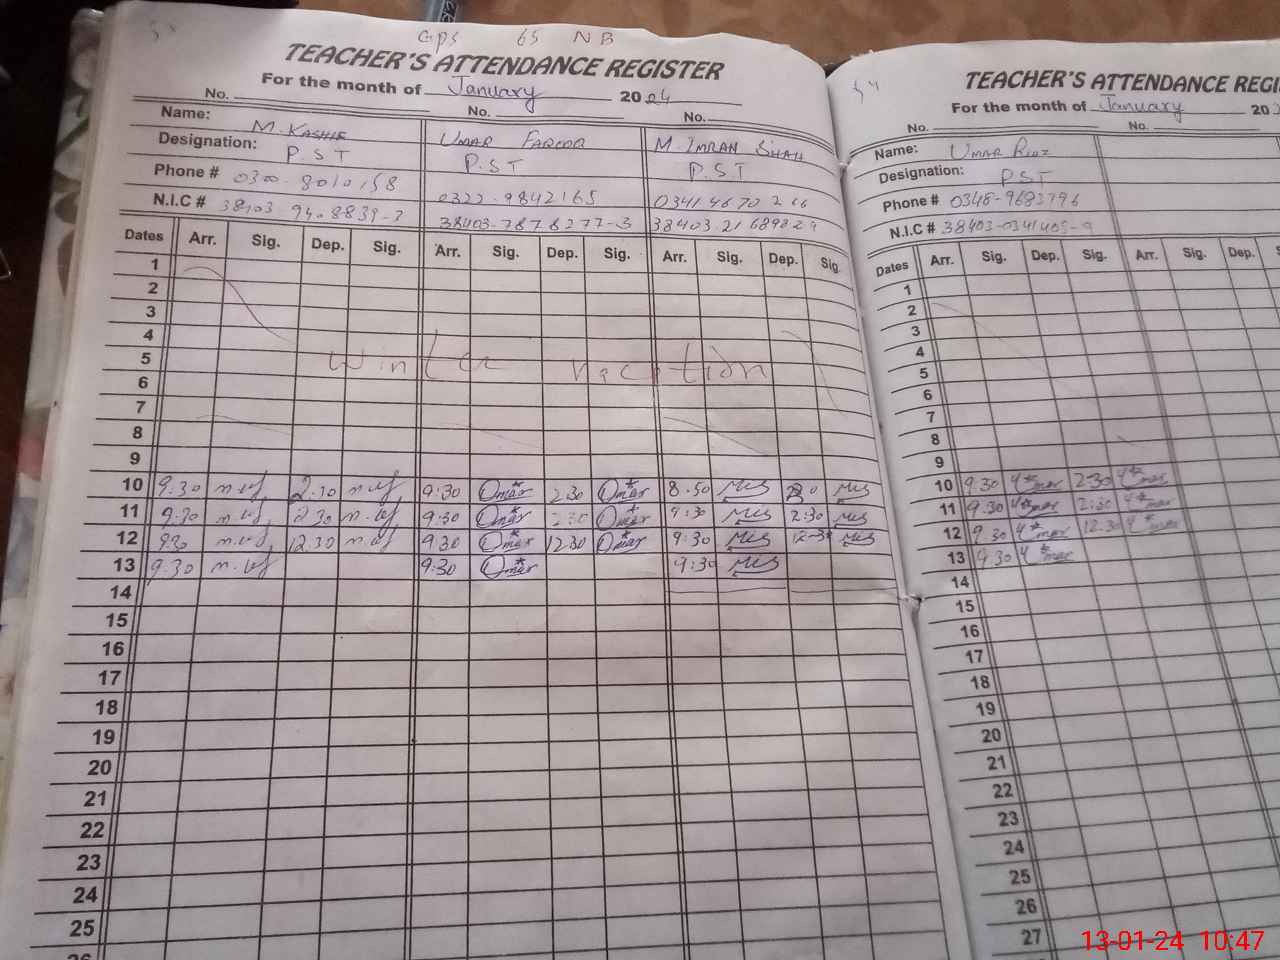 GPS 65 NB
TEACHER'S ATTENDANCE REGISTER
For the month of January 2024
No. No. No.
Name: M. KASHIF UMAR FAROOQ M. IMRAN SHAH
Designation: P.S.T P.S.T P.S.T
Phone # 0300-8010158 0322-9842165 0341 4670266
N.I.C # 38403-7878277-3
Dates Arr. Sig. Dep. Sig. Arr. Sig. Dep. Sig. Arr. Sig. Dep. Sig.
1
2
3
4
5
winter vacation
6
7
8
9
10 9:30 2:30 9:30 Omar 2:30 Omar 8:50
11 9:30 2:30 9:30 Omar 2:30 Omar 9:30 2:30
12 9:30 12:30 9:30 Omar 12:30 Omar 9:30 12:30
13 9:30 9:30 Omar 9:30
14
15
16
17
18
19
20
21
22
23
24
25
26
54
TEACHER'S ATTENDANCE REGI
For the month of January 20
No. No.
Name: UMAR RIAZ
Designation: PST
Phone # 0348-9683796
N.I.C # 38403-0341405-9
Dates Arr. Sig. Dep. Sig. Arr. Sig. Dep. S
1
2
3
4
5
6
7
8
9
10 9:30 2:30
11 9:30 2:30
12 9:30 12:30
13 9:30
14
15
16
17
18
19
20
21
22
23
24
25
26
27
13-01-24 10:47